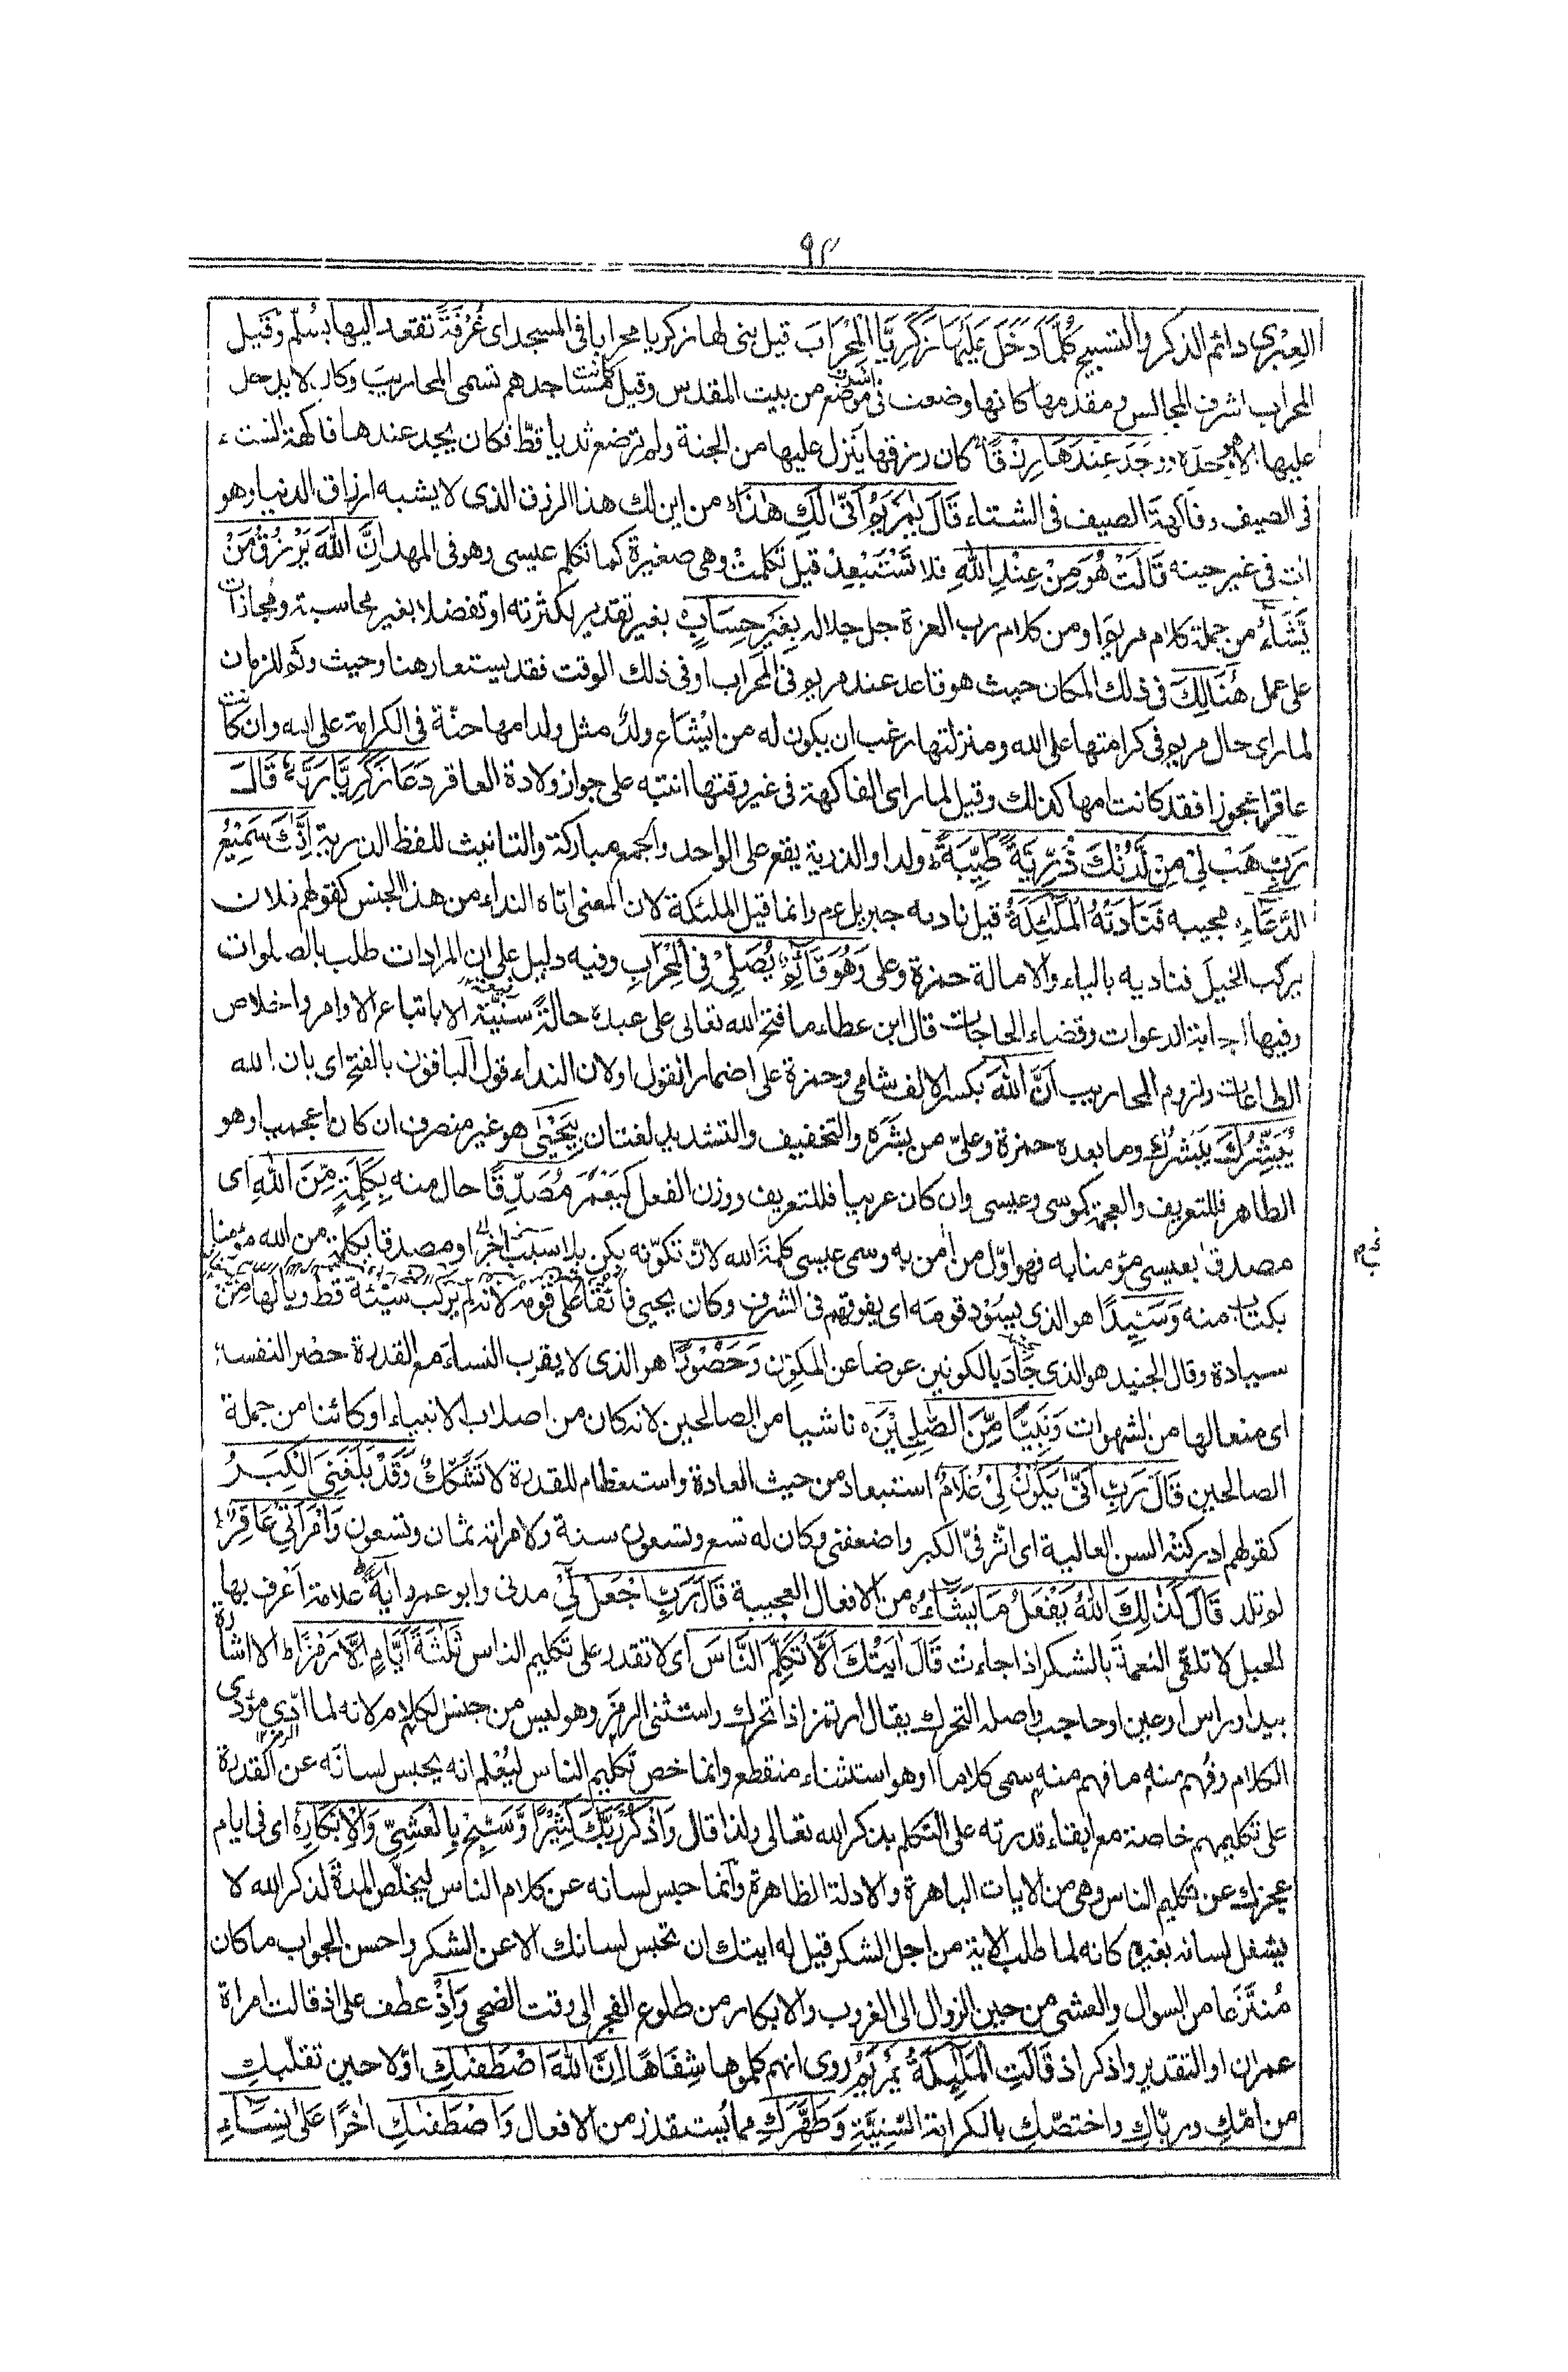 ٩٢
العبري دائم الذكر والتسبيح كُلَّمَا دَخَلَ عَلَيْهَا زَكَرِيَّا الْمِحْرَابَ قيل بنى لها زكريا محرابا فى المسجد اى غُرْفَةً تقعد اليها بسُلّم وقيل
المحراب اشرف المجالس ومقدمها كانها وضعت فى اشرف موضع من بيت المقدس وقيل كانت مساجدهم تسمى المحاريب وكان لا يدخل
عليها الا هو وحده وَجَدَ عِنْدَهَا رِزْقًا كان رزقها ينزل عليها من الجنة ولم ترضع ثديا قطّ فكان يجد عندها فاكهة الشتاء
فى الصيف وفاكهة الصيف فى الشتاء قَالَ يٰمَرْيَمُ اَنّٰى لَكِ هٰذَا من اين لك هذا الرزق الذى لا يشبه ارزاق الدنيا وهو
اٰت فى غير حينه قَالَتْ هُوَ مِنْ عِنْدِ اللّٰهِ فلا تَسْتَبْعِدْ قيل تكلمتْ وهى صغيرة كما تكلم عيسى وهو فى المهد اِنَّ اللّٰهَ يَرْزُقُ مَنْ
يَّشَآءُ من جملة كلام مريم او من كلام رب العزة جل جلاله بِغَيْرِ حِسَابٍ بغير تقدير لكثرته او تفضلا بغير محاسبة ومجازات
على عمل هُنَالِكَ فى ذلك المكان حيث هو قاعد عند مريم فى المحراب او فى ذلك الوقت فقد يستعار هنا وحيث وثم للزمان
لما راى حال مريم فى كرامتها على الله ومنزلتها رغب ان يكون له من ايشاع ولدٌ مثل ولد امها حنّة فى الكرامة على الله وان كانت
عاقرا عجوزا فقد كانت امها كذلك وقيل لما راى الفاكهة فى غير وقتها انتبه على جواز ولادة العاقر دَعَا زَكَرِيَّا رَبَّهٗ قَالَ
رَبِّ هَبْ لِيْ مِنْ لَّدُنْكَ ذُرِّيَّةً طَيِّبَةً ولدا والذرية يقع على الواحد والجمع مباركة والتانيث للفظ الذرية اِنَّكَ سَمِيْعُ
الدُّعَآءِ مجيبه فَنَادَتْهُ الْمَلٰٓئِكَةُ قيل ناديه جبريل عم وانما قيل الملئكة لان المعنى اتاه النداء من هذا الجنس كقولهم فلان
يركب الخيل فناديه بالياء والامالة حمزة وعلى وَهُوَ قَآئِمٌ يُّصَلِّيْ فِى الْمِحْرَابِ وفيه دليل على ان المرادات طلب بالصلوات
وفيها اجابة الدعوات وقضاء الحاجات قال ابن عطاء ما فتح الله تعالى على عبده حالةً سنيّة الا باتباع الاوامر واخلاص
الطاعات ولزوم المحاريب اَنَّ اللّٰهَ بكسر الالف شامى وحمزة على اضمار القول او لان النداء قول الباقون بالفتح اى بان الله
يُبَشِّرُكَ يَبْشُرُكَ وما بعده حمزة وعلىّ من بشَرَه والتخفيف والتشديد لغتان بِيَحْيٰى هو غير منصرف ان كان اعجميا وهو
الظاهر فللتعريف والعجمة كموسى وعيسى وان كان عربيا فللتعريف ووزن الفعل كيَعْمَر مُصَدِّقًا حال منه بِكَلِمَةٍ مِّنَ اللّٰهِ اى
مصدقا بعيسى مؤمنا به فهو اوّل من اٰمن به وسمى عيسى كلمة الله لانّ تكوّنه بكن بلا سبب اخر او مصدقا بكلمة من الله مؤمنا
بكتاب منه وَسَيِّدًا هو الذى يسُوْد قومه اى يفوقهم فى الشرف وكان يحيى فائقا على قومه لانه لم يركب سيّئة قط ويا لها مِنْ
سيادة وقال الجنيد هو الذى جَادَ بالكونين عوضا عن المكوّن وَحَصُوْرًا هو الذى لا يقرب النساء مع القدرة حصْر النفسه
اى منعا لها من الشهوات وَنَبِيًّا مِّنَ الصّٰلِحِيْنَ ناشيا من الصالحين لانه كان من اصلاب الانبياء او كائنا من جملة
الصالحين قَالَ رَبِّ اَنّٰى يَكُوْنُ لِيْ غُلٰمٌ استبعاد من حيث العادة واستعظام للقدرة لا تشكّك وَّقَدْ بَلَغَنِيَ الْكِبَرُ
كقولهم ادركته السن العالية اى اثّر فىّ الكبر واضعفنى وكان له تسع وتسعون سنة ولامراته ثمان وتسعون وَامْرَاَتِيْ عَاقِرٌ
لم تلد قَالَ كَذٰلِكَ اللّٰهُ يَفْعَلُ مَا يَشَآءُ من الافعال العجيبة قَالَ رَبِّ اجْعَلْ لِّيْ مدنى وابو عمرو اٰيَةً علامة اَعْرف بها
الحبل لاتلقى النعمة بالشكر اذا جاءت قَالَ اٰيَتُكَ اَلَّا تُكَلِّمَ النَّاسَ اى لا تقدر على تكليم الناس ثَلٰثَةَ اَيَّامٍ اِلَّا رَمْزًا الا اشارة
بيد او راس او عين او حاجب واصله التحرك يقال ارتمز اذا تحرك واستثنى الرمز وهو ليس من جنس الكلام لانه لما ادّى مؤدى
الكلام وفُهم منه ما فهم منه سمى كلاما او هو استثناء منقطع وانما خص تكليم الناس ليُعْلم انه يحبس لسانه عن القدرة
على تكليمهم خاصة مع ابقاء قدرته على التكلم بذكر الله تعالى ولذا قال وَاذْكُرْ رَّبَّكَ كَثِيْرًا وَّسَبِّحْ بِالْعَشِيِّ وَالْاِبْكَارِ اى فى ايام
عجزك عن تكليم الناس وهى من الايات الباهرة والادلة الظاهرة وانما حبس لسانه عن كلام الناس ليخلّص المدة لذكر الله لا
يشغل لسانه بغيره كانه لما طلب الاية من اجل الشكر قيل له ايتك ان تحبس لسانك الا عن الشكر واحسن الجواب ما كان
مُنتزَعا من السوال والعشى من حين الزوال الى الغروب والابكار من طلوع الفجر الى وقت الضحى وَاِذْ عطف على اذ قالت امراة
عمران او التقدير واذكر اذ قَالَتِ الْمَلٰٓئِكَةُ يٰمَرْيَمُ روى انهم كلموها شِفَاهًا اِنَّ اللّٰهَ اصْطَفٰىكِ اوّلا حين تقبّلكِ
من امّكِ وربّاكِ واختصّكِ بالكرامة السَّنِيَّةِ وَطَهَّرَكِ مما يُستقذر من الافعال وَاصْطَفٰىكِ اٰخرًا عَلٰى نِسَآءِ